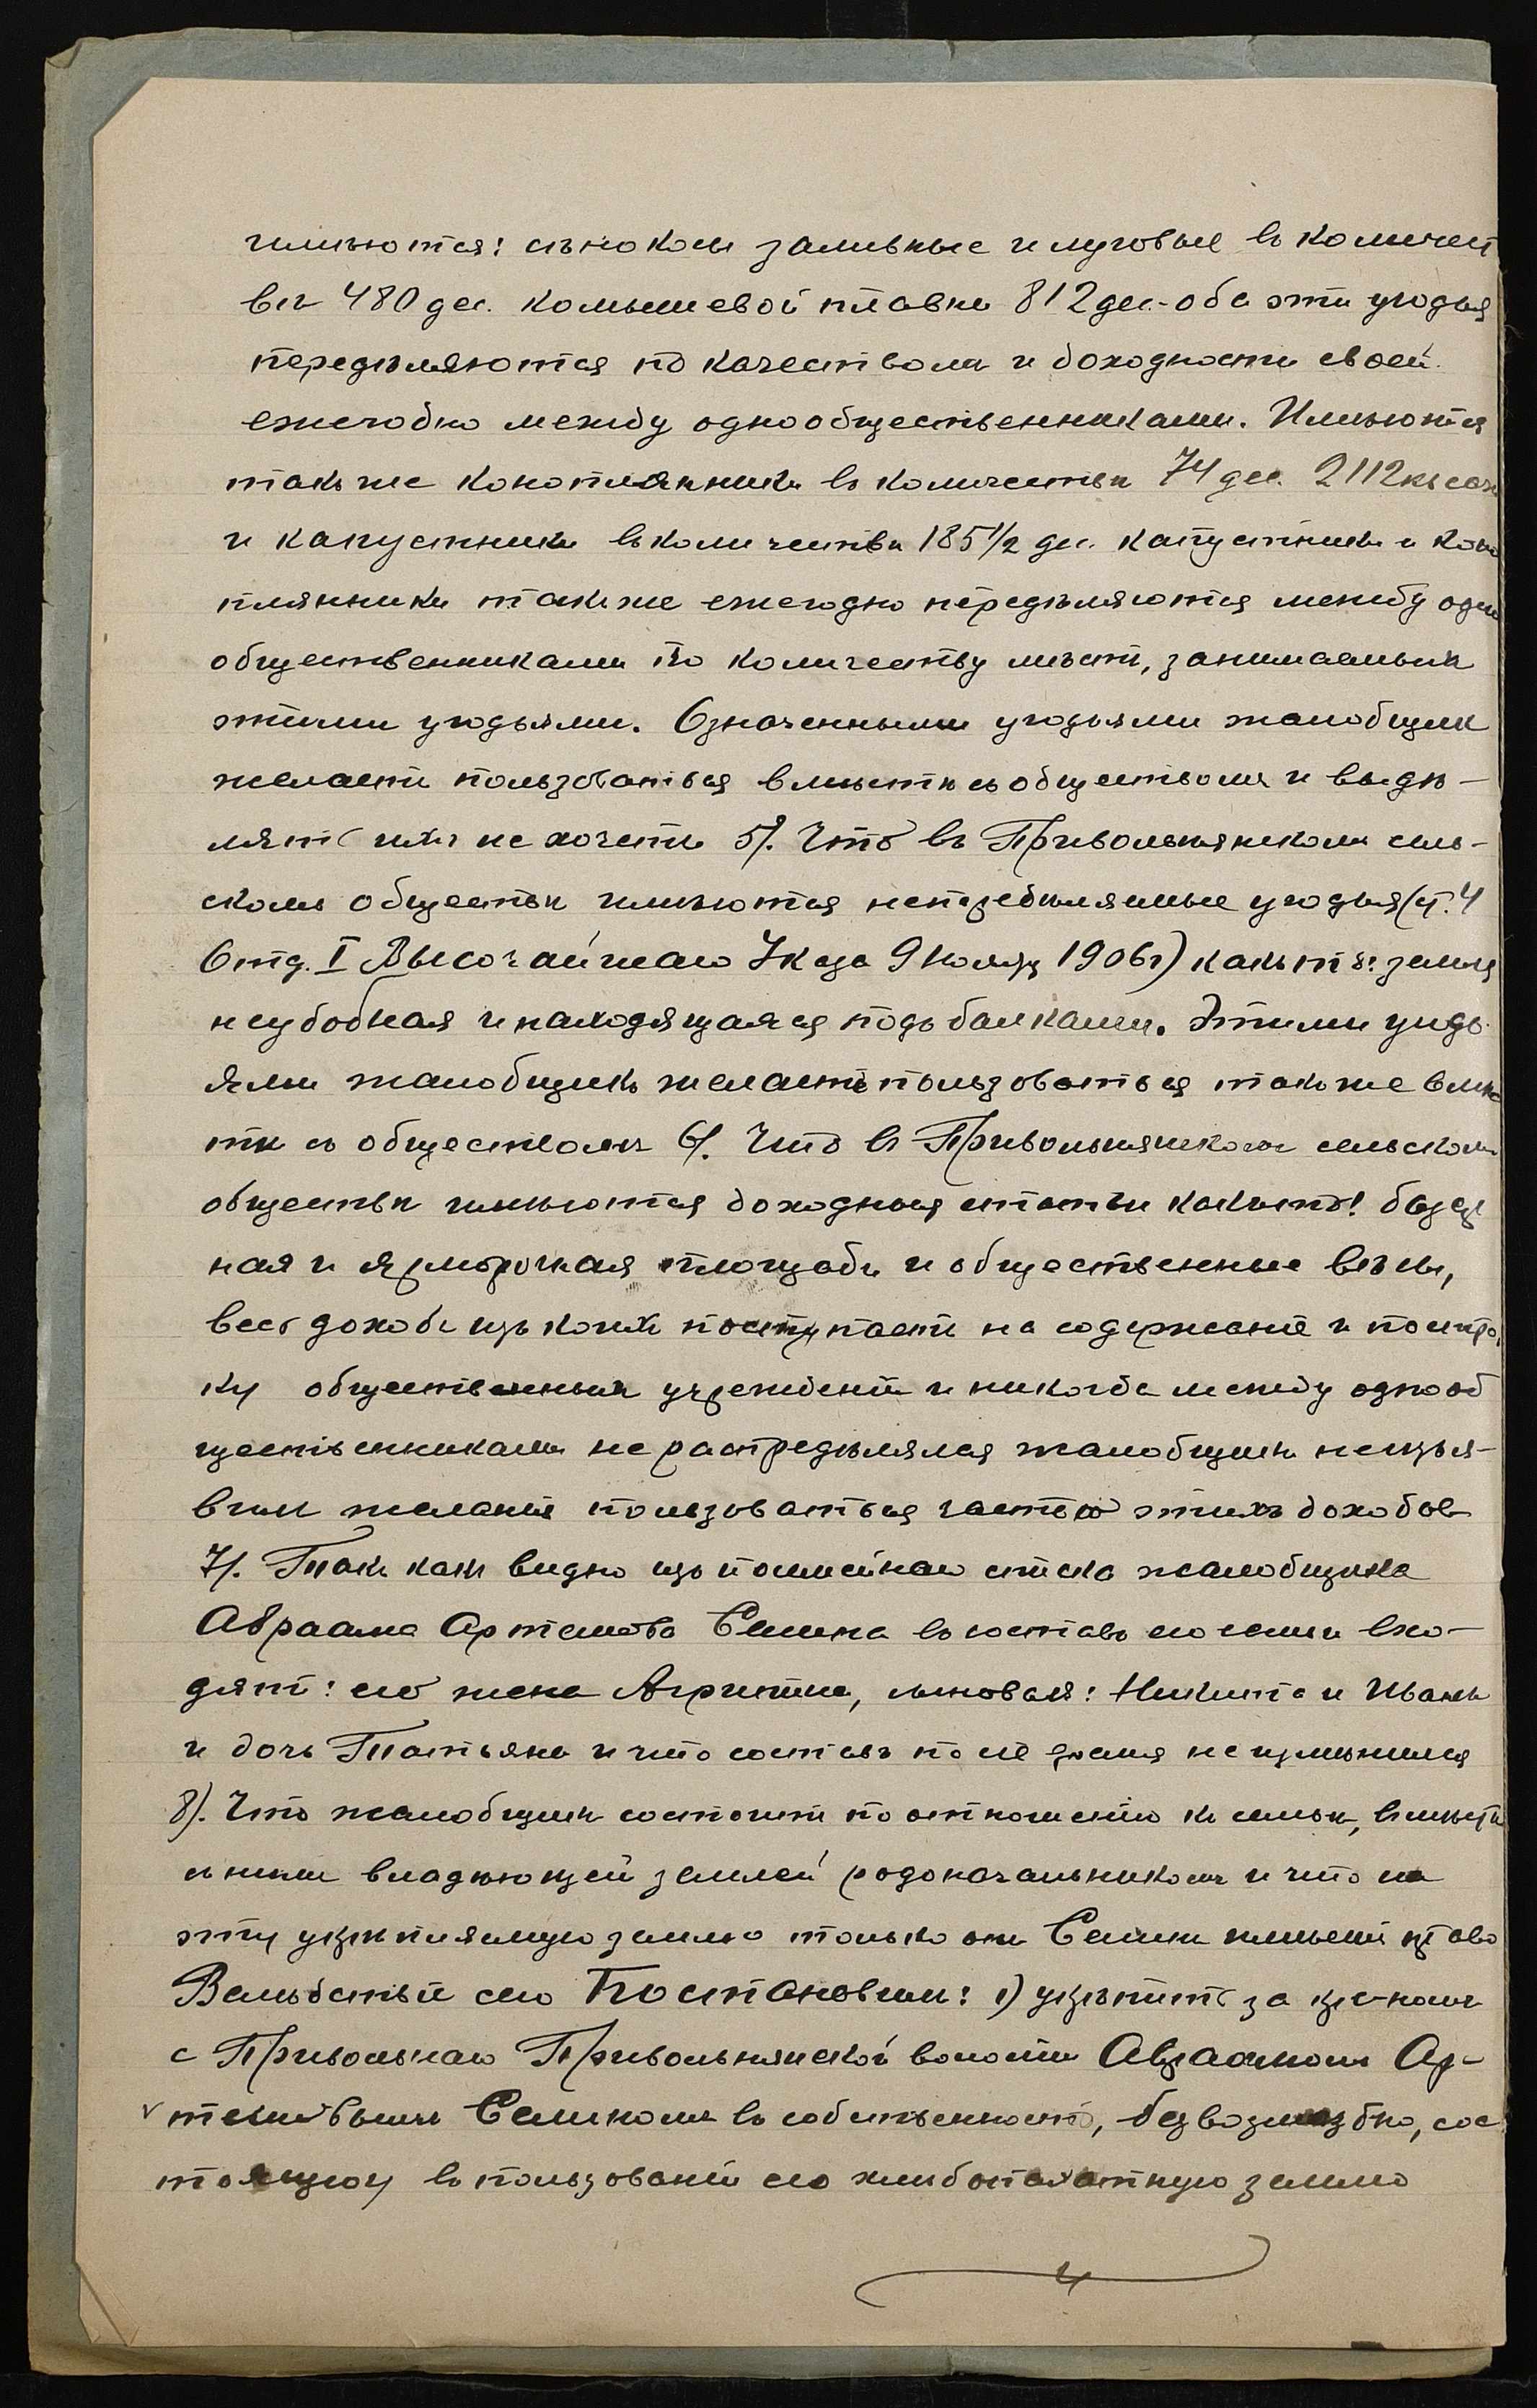 имѣются: сѣнокосы заливные и луговые въ количест
вѣ 480 дес. камышевой плавни 812 дес. - оба эти угодья
передѣляются по качествомъ и доходности своей
ежегодно между однообщественниками. Имѣются
такъ же конопляники въ количествѣ 74 дес. 2112 кв саж
и капустники въ количествѣ 185 1/2 дес. капустники и коно
плянники также ежегодно передѣляются между одно
общественниками по количеству мѣст, занимаемыхъ
этими угодьями. Означенными угодьями жалобщикъ
желаетъ пользоваться вмѣстѣ съ обществомъ и выдѣ-
лять ихъ не хочетъ 5/. Что въ Привольнянскомъ сель-
скомъ обществѣ имѣются непередѣляемые угодья (ст. 4
Отд. I Высочайшаго Указа 9 ноября 1906 г) какъ то: земля
неудобная и находящаяся подъ балками. Этими угодь
ями жалобщикъ желаетъ пользоваться также вмѣс
тѣ съ обществомъ 6/. Что въ Привольнянскомъ сельскомъ
обществѣ имѣются доходныя статьи какъ то: базар
ная и ярморочная площадь и общественные вѣсы,
весь доходъ изъ коихъ поступаетъ на содержаніе и построй
ку общественныхъ учрежденій и никогда между однооб
щественниками не распредѣлялся жалобщикъ не изъя-
вилъ желанія пользоваться частью этихъ доходовъ
7/. Такъ какъ видно изъ посемейнаго списка жалобщика
Авраама Артемова Селина въ составъ его семьи вхо-
дятъ: его жена Агрипина, сыновья: Никита и Иванъ
и дочь Татьяна и что составъ по сіе время не измѣнился
8). Что жалобщикъ состоитъ по отношенію къ семьѣ, вмѣстѣ
съ нимъ владѣющей землей родоначальникомъ и что на
эту укрѣпляемую землю только онъ Селинъ имѣетъ право
Вслѣдствіе сего Постановилъ: 1) укрѣпить за кр-номъ
с Привольнаго Привольнянской волости Авраамомъ Ар-
темовымъ Селиномъ въ собственность, безвозмездно, сос
тоящую въ пользованіи его хлѣбопахатную землю